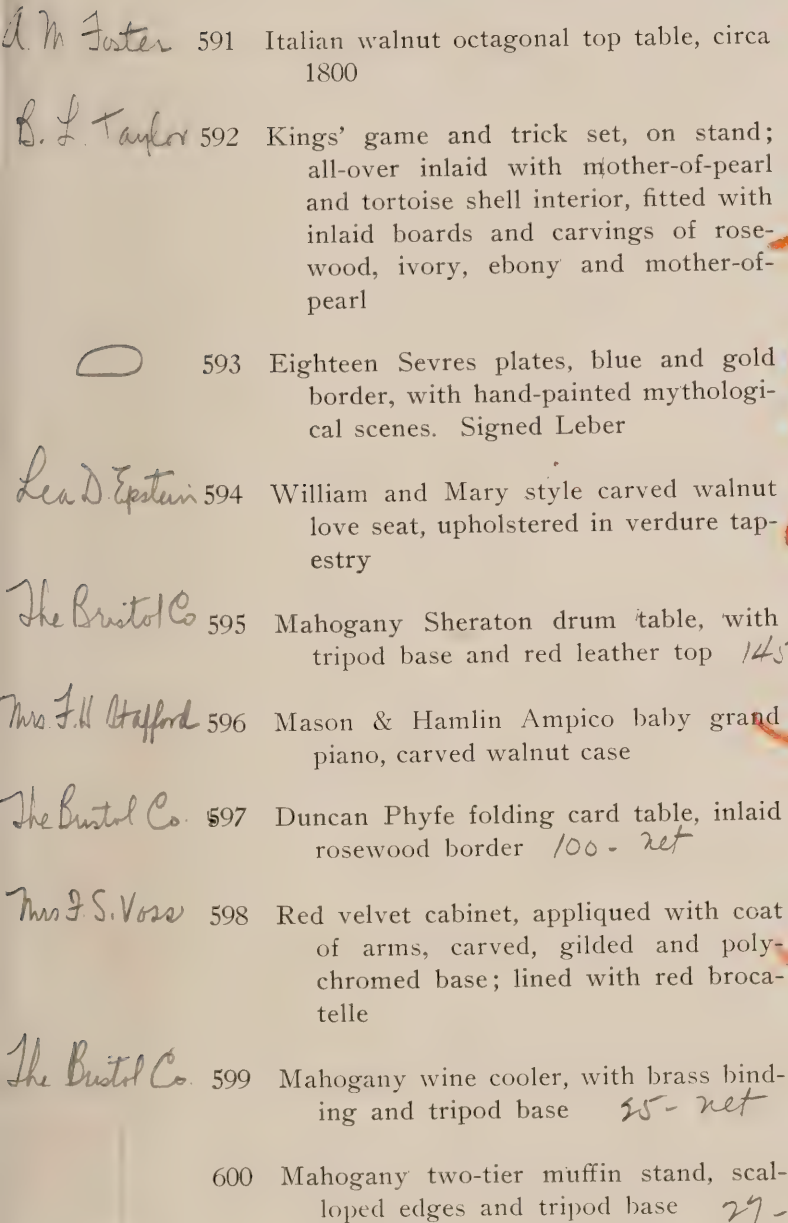 A. M Foster 591 Italian walnut octagonal top table, circa
1800
B. L. Taylor 592 Kings' game and trick set, on stand;
all-over inlaid with mother-of-pearl
and tortoise shell interior, fitted with
inlaid boards and carvings of rose-
wood, ivory, ebony and mother-of-
pearl
593 Eighteen Sevres plates, blue and gold
border, with hand-painted mythologi-
cal scenes. Signed Leber
Lea D. Epstein 594 William and Mary style carved walnut
love seat, upholstered in verdure tap-
estry
The Bristol Co 595 Mahogany Sheraton drum table, with
tripod base and red leather top 145
Mrs. F. H Stafford 596 Mason & Hamlin Ampico baby grand
piano, carved walnut case
The Bristol Co. 597 Duncan Phyfe folding card table, inlaid
rosewood border 100 - net
Mrs F. S. Voss 598 Red velvet cabinet, appliqued with coat
of arms, carved, gilded and poly-
chromed base; lined with red broca-
telle
The Bristol Co. 599 Mahogany wine cooler, with brass bind-
ing and tripod base - net
600 Mahogany two-tier muffin stand, scal-
loped edges and tripod base 27 -